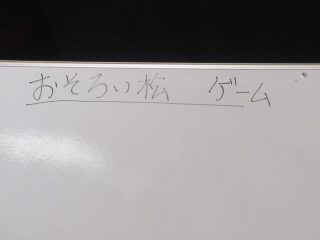 おそろい松　ゲーム